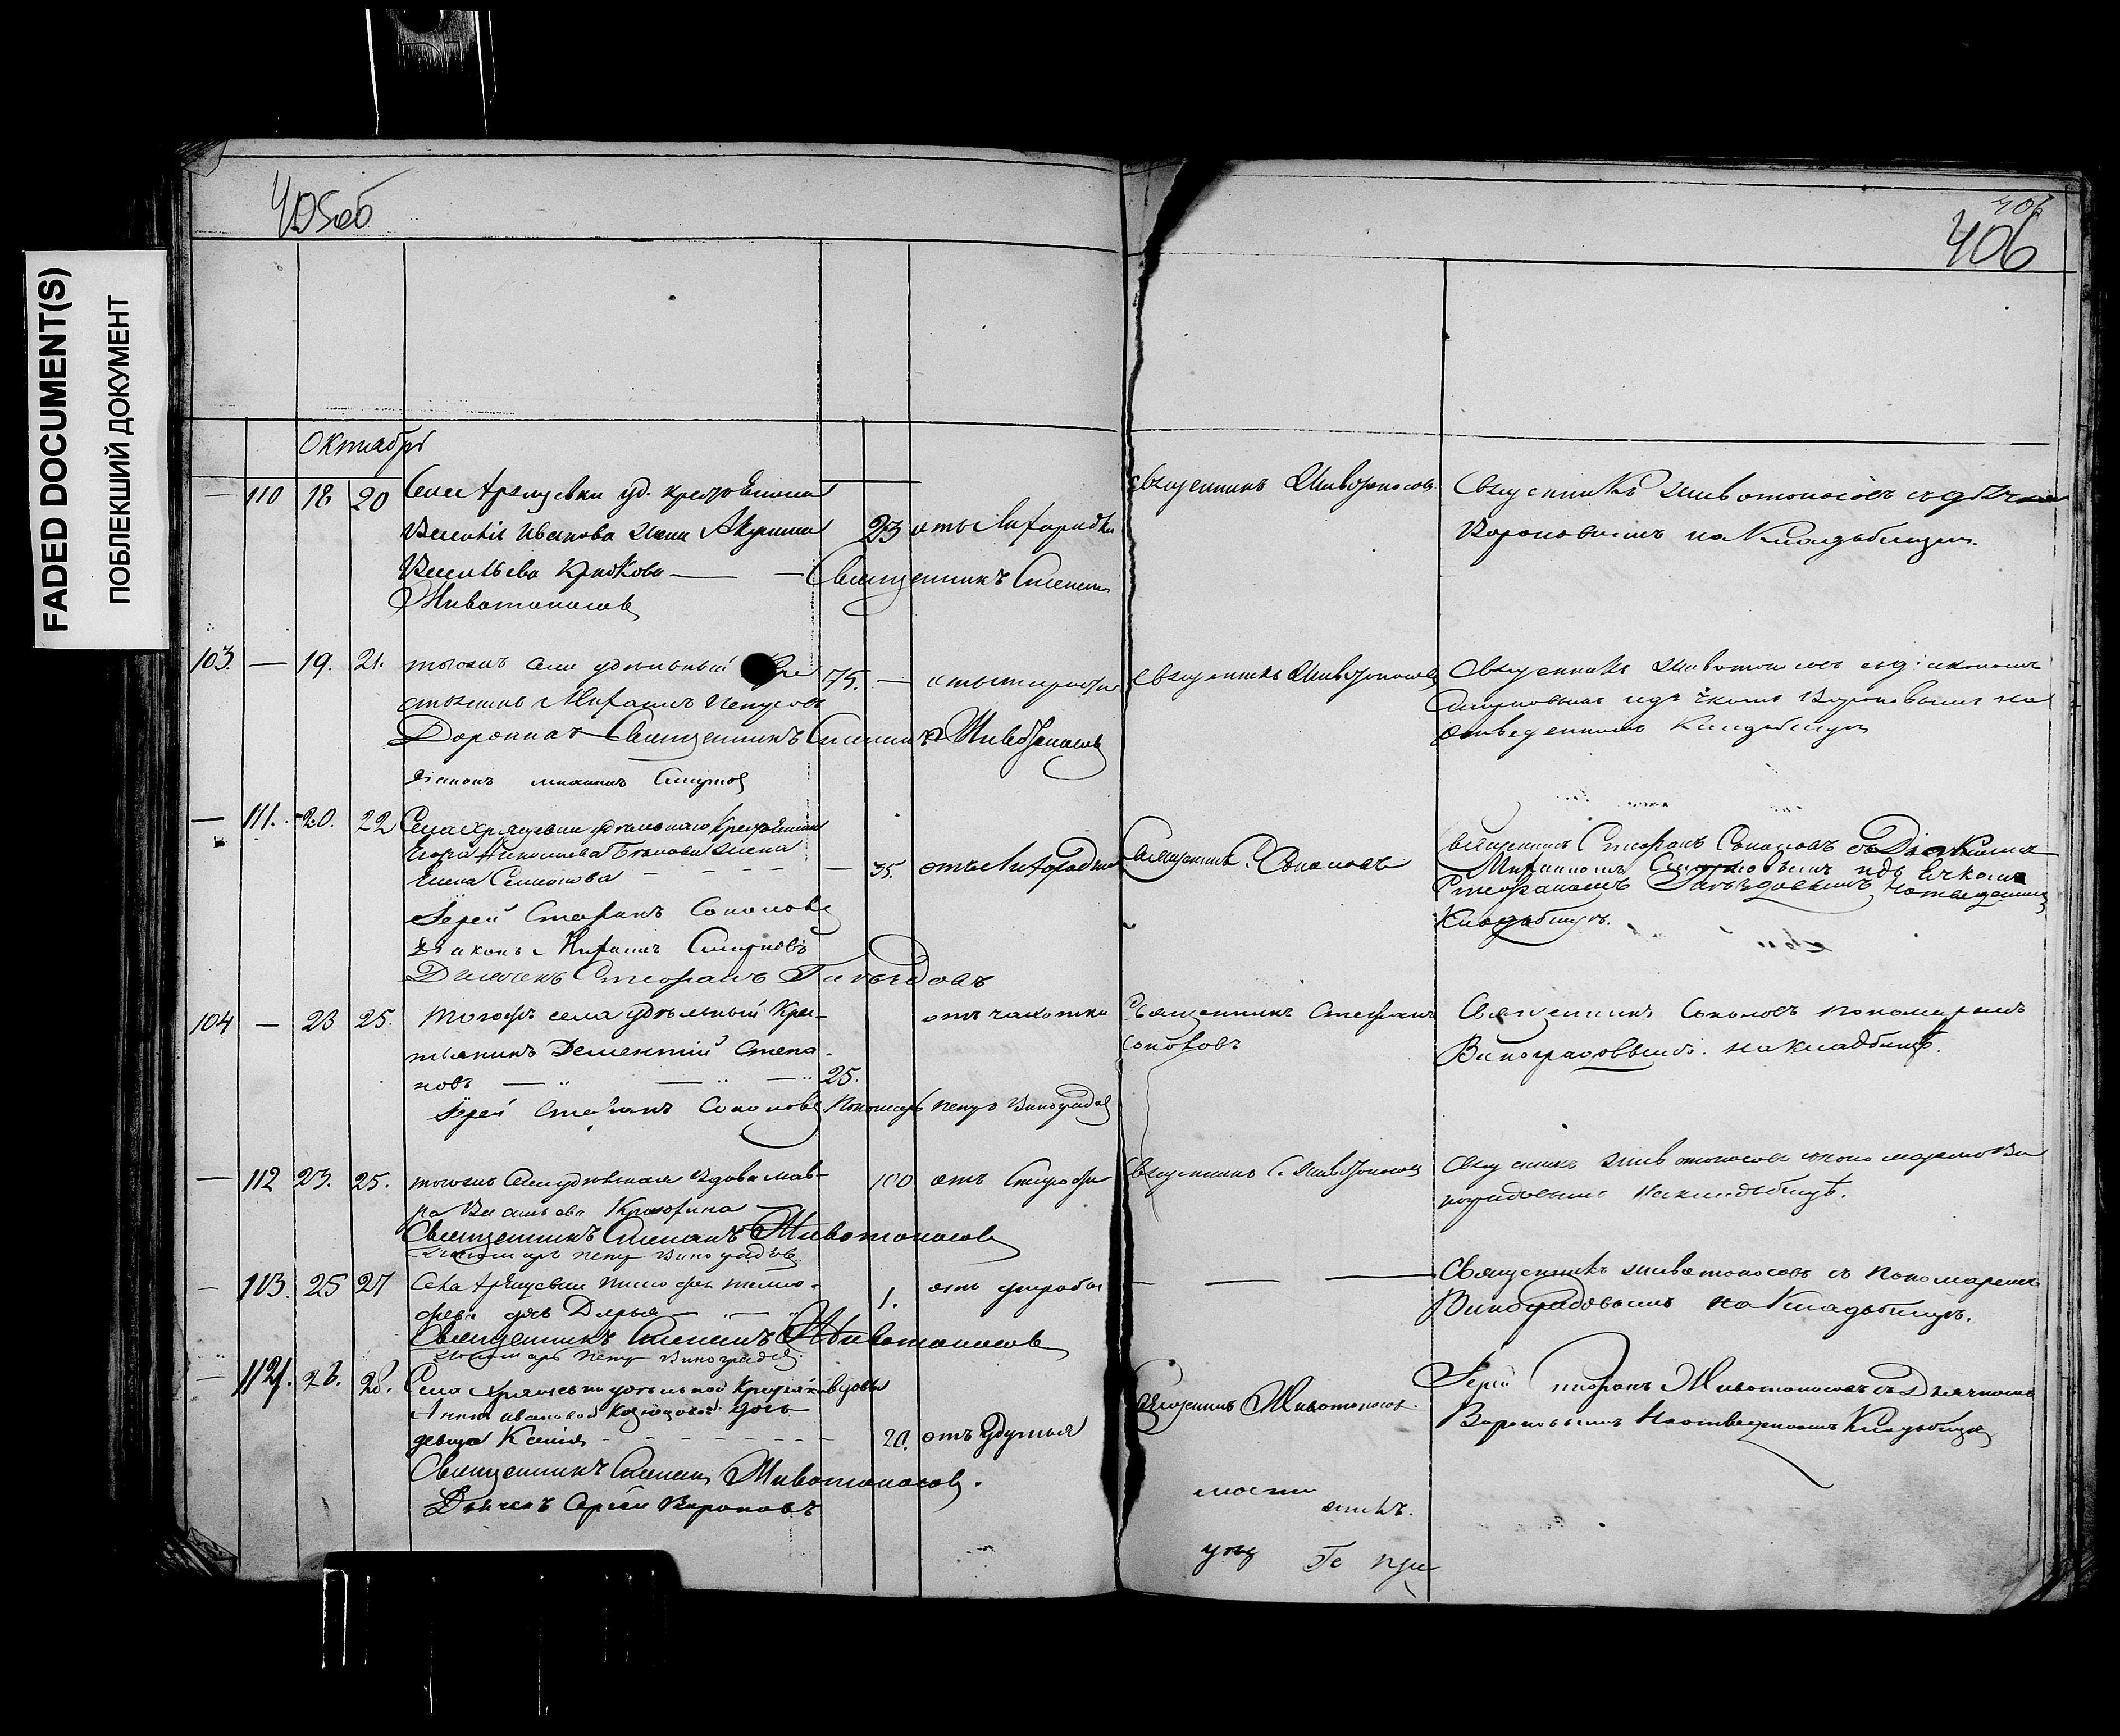 FADED DOCUMENT(S)
ПОБЛЕКШИЙ ДОКУМЕНТ
405об
406
406
Октябрь
— 110 18 20 Села уд. крестьянина
Василія Иванова жена Акулина
23 отъ лихорадки
Васильева Крюкова — — Священникъ Стефанъ
Животоносовъ
священникъ Животоносовъ
Священникъ Животоносовъ съ дьячкомъ
Вороновымъ на кладбищѣ.
103. — 19. 21. тогожъ села удѣльный кре
75. — отъ старости
стьянинъ Петровъ
Доронинъ Священникъ Стефанъ Животоносовъ
Діаконъ Смирновъ
священникъ Животоносовъ
Священникъ Животоносовъ съ діакономъ
Смирновымъ и дьячкомъ Вороновымъ на
отведенномъ кладбищѣ
— 111. 20. 22 Села удѣльнаго крестьянина
Егора жена
Елена Семенова — — — — 35. отъ лихорадки
Іерей Стефанъ Соколовъ
Діаконъ Смирновъ
Дьячекъ Стефанъ Гнѣздовъ
Священникъ С. Соколовъ
Священникъ Стефанъ Соколовъ съ Діакономъ
Смирновымъ и дьячкомъ
Стефаномъ Гнѣздовымъ на отведенномъ
кладбищѣ.
104 — 23 25. Тогожъ села удѣльный кре-
отъ чахотки
стьянинъ Дементій Степа-
новъ — — — 25.
Іерей Стефанъ Соколовъ Пономарь Петръ Виноградовъ
Священникъ Стефанъ
Соколовъ
Священникъ Соколовъ пономаремъ
Виноградовымъ на кладбищѣ.
— 112 23. 25. тогожъ села удѣльная вдова Мав-
100 отъ старости
ра Васильева
Священникъ Стефанъ Животоносовъ
Пономарь Петръ Виноградовъ
Священникъ С. Животоносовъ
Священникъ Животоносовъ с пономаремъ Ви
ноградовымъ на кладбищѣ.
— 113. 25 27 Села Тимофея Тимо-
1.
феева дочь Дарья — —
Священникъ Стефанъ Животоносовъ
Пономарь Петръ Виноградовъ
— — —
Священникъ Животоносовъ съ пономаремъ
Виноградовымъ на кладбищѣ.
— 114. 26. 28. Села удѣльной крестьянской вдовы
Анны Ивановой дочь
девица Ксенія — — — — 20. отъ удушья
Священникъ Стефанъ Животоносовъ.
Дьячекъ Сергѣй Вороновъ
Священникъ Животоносовъ.
Іерей Стефанъ Животоносовъ съ Дьячкомъ
Вороновымъ на отведенномъ кладбищѣ